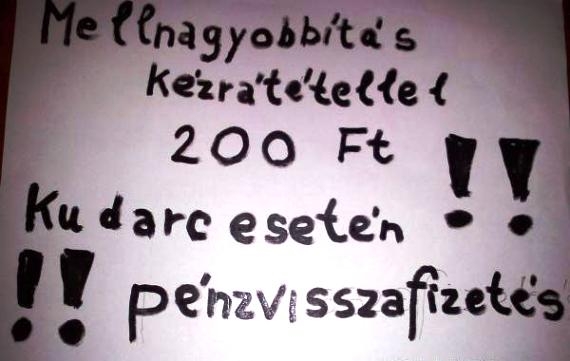 Mellnagyobbítás
kézrátétellel
200 Ft !!
Kudarc esetén
!! pénzvisszafizetés